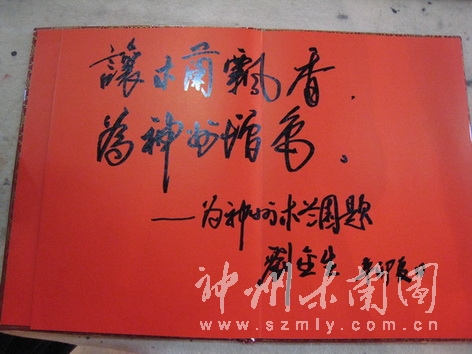 讓木蘭飄香.
為神州增色。
——为神州木兰园题
劉金生
神州木蘭園
www.szmly.com.cn